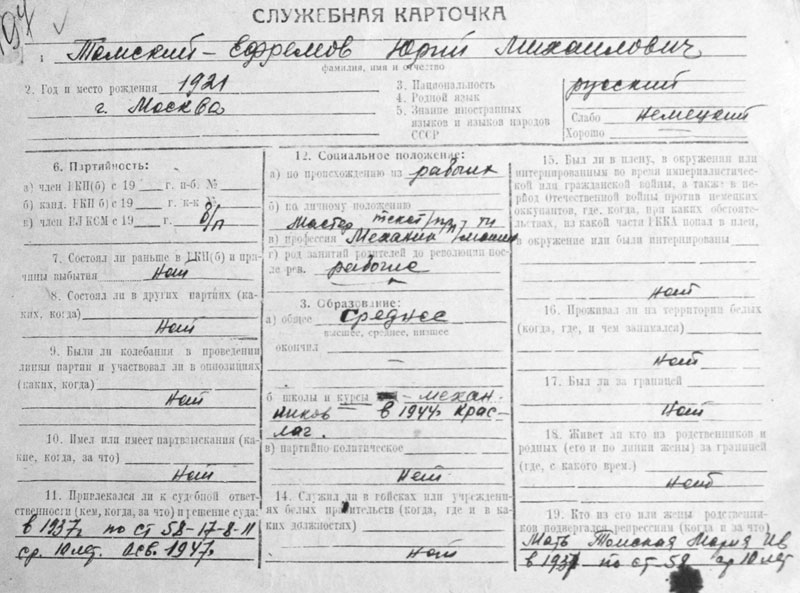 СЛУЖЕБНАЯ КАРТОЧКА
1 Томский-Ефремов Юрий Михайлович
фамилия, имя и отчество
2. Год и место рождения 1921
г. Москва
3. Национальность русский
4. Родной язык
5. Знание иностранных
языков и языков народов
СССР
Слабо немецкий
Хорошо
6. Партийность:
а) член ВКП(б) с 19 г. п-б. №
б) канд. ВКП б) с 19 г. к-к №
в) член ВЛКСМ с 19 г. б/п
7. Состоял ли раньше в ВКП(б) и при-
чины выбытия нет
8. Состоял ли в других партиях (ка-
ких, когда)
нет
9. Были ли колебания в проведении
линии партии и участвовал ли в оппозициях
(каких, когда)
нет
10. Имел или имеет партвзыскания (ка-
кие, когда, за что)
нет
11. Привлекался ли к судебной ответ-
ственности (кем, когда, за что) и решение суда:
в 1937г по ст 58-17-8-11
ср. 10 лет. осв. 1947г.
12. Социальное положение:
а) по происхождению из рабочих
б) по личному положению
Мастер
в) профессия Механик
г) род занятий родителей до революции пос-
ле рев. рабочие
3. Образование:
а) общее среднее
высшее, среднее, низшее
окончил —
б школы и курсы — механ
ников — в 1944г Крас-
лаг.
в) партийно-политическое
нет
14. Служил ли в войсках или учрежден-
иях белых правительств (когда, где и в ка-
ких должностях)
нет
15. Был ли в плену, в окружении или
интернированным во время империалистиче-
ской или гражданской войны, а также в пе-
риод Отечественной войны против немецких
оккупантов, где, когда, при каких обстоя-
тельствах, из какой части РККА попал в плен,
в окружение или были интернированы
нет
16. Проживал ли на территории белых
(когда, где, и чем занимался)
нет
17. Был ли за границей
нет
18. Живет ли кто из родственников и
родных (его и по линии жены) за границей
(где, с какого врем.)
нет
19. Кто из его или жены родственни-
ков подвергался репрессиям (когда и за что)
Мать Томская Мария Ив
в 1937 по ст 58 ср 10 лет